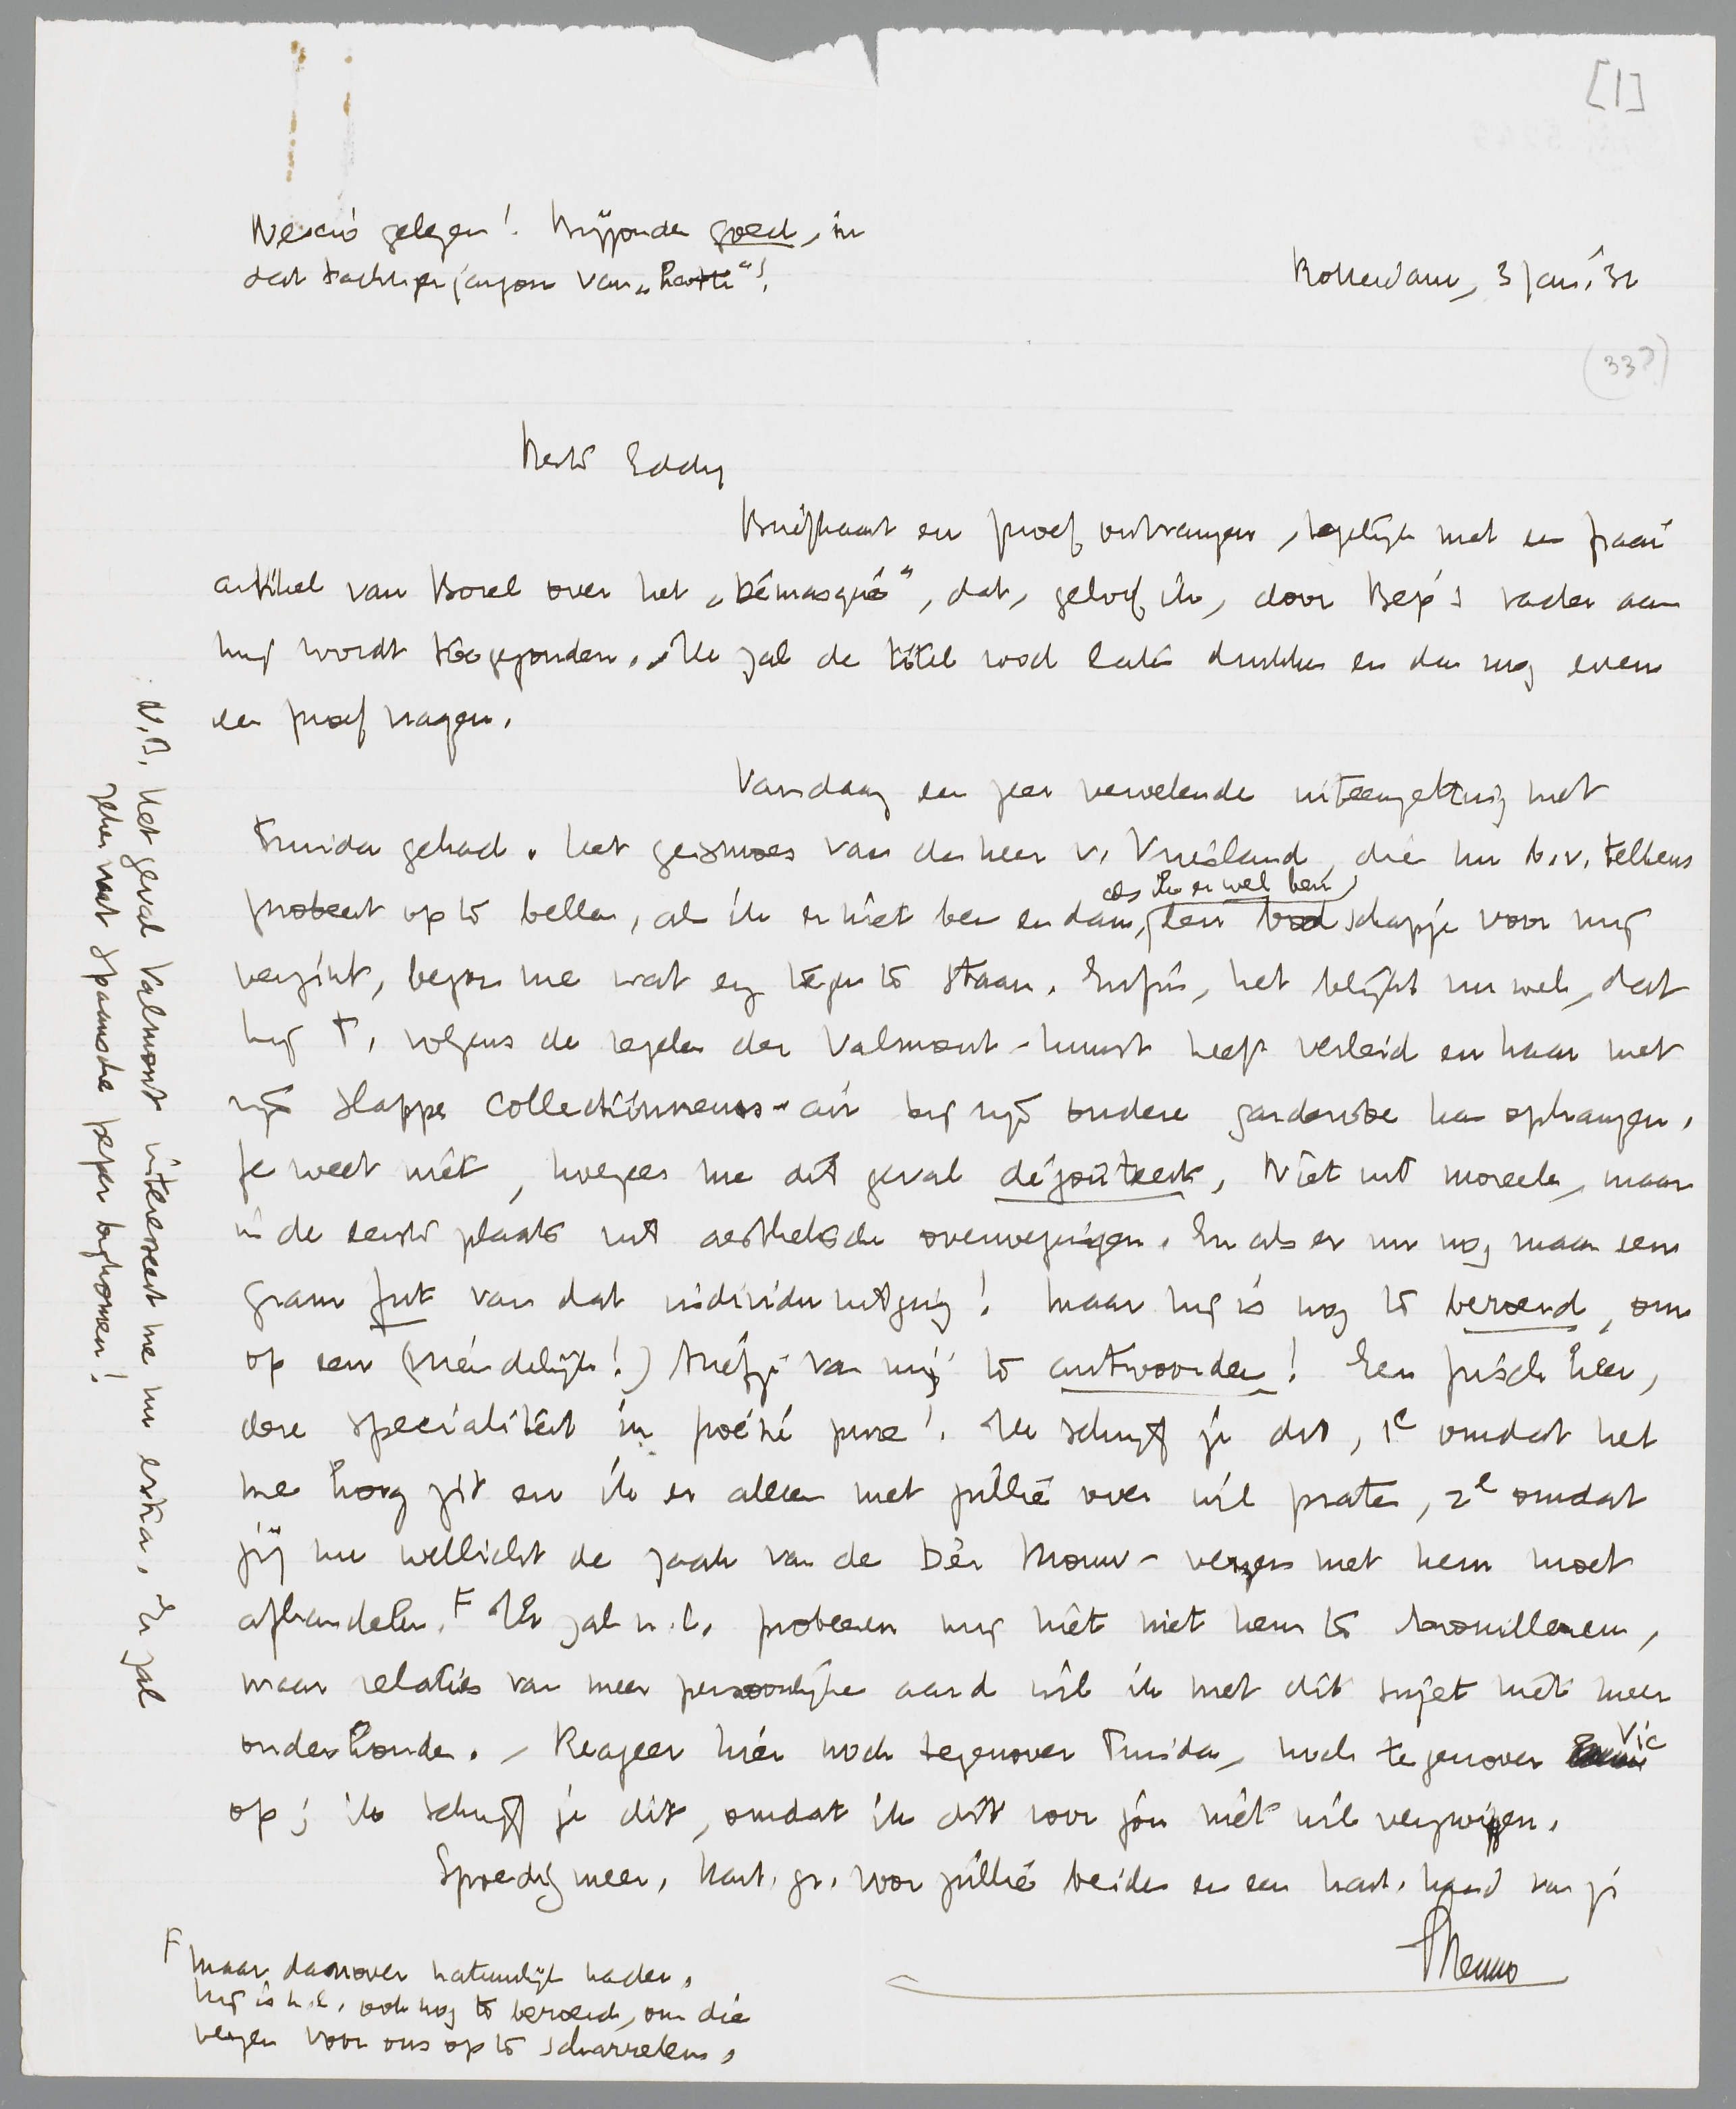 [1]
Nescio gelezen! Bijzonder goed, in
dat tachtiger jargon van „Haatte"!
Rotterdam, 3 Jan. '32
(337)
Beste Eddy
Briefkaart en proef ontvangen, tegelijk met een fraai
artikel van Borel over het „Démasqué", dat, geloof ik, door Bep's vader aan
mij wordt toegezonden. Ik zal de titel rood laten drukken en dan nog even
een proef vragen.
Vandaag een zeer vervelende uiteenzetting met
Truida gehad. Het gesmoes van den heer v. Vriesland, die nu b.v. telkens
probeert op te bellen, als ik er niet ben en dan, als ik er wel ben, een boodschapje voor mij
verzint, begon me wat erg tegen te staan. Enfin, het blijkt nu wel, dat
hij T. volgens de regelen der Valmont-kunst heeft verleid en haar met
zijn slappe collectionneurs-air bij zijn andere garderobe kan ophangen.
Je weet niet, hoezeer me dit geval degoûteert, niet uit moreele, maar
in de eerste plaats uit aesthetische overwegingen. En als er nu nog maar een
gram fut van dat individu uitging! Maar hij is nog te beroerd, om
op een (vriendelijk!) briefje van mij te antwoorden! Een frisch heer,
deze specialiteit in poésie pure! Ik schrijf je dit, 1e omdat het
me hoog zit en ik er alleen met jullie over wil praten, 2e omdat
jij nu wellicht de zaak van de Dèr Mouw-verzen met hem moet
afhandelen. F Ik zal n.l. probeeren mij niet met hem te brouilleeren,
maar relaties van meer persoonlijke aard wil ik met dit sujet niet meer
onderhouden. – Reageer hier noch tegenover Truida, noch tegenover Vic
op; ik schrijf je dit, omdat ik dit voor jou niet wil verzwijgen.
Spoedig meer. Hart. gr. voor jullie beiden en een hart. hand van je
Menno
F Maar daarover natuurlijk nader.
Hij is n.l. ook nog te beroerd, om die
verzen voor ons op te scharrelen.
N.B. Het geval Valmont interesseert me nu extra. Er zal
zeker wat Spaansche peper bijkomen!